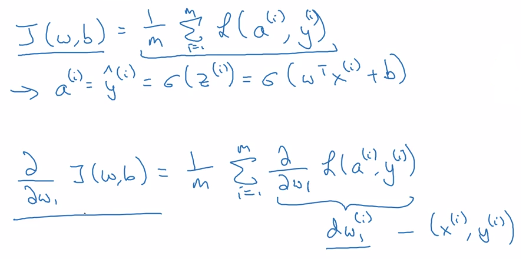 J(w,b) = 1/m Σ_{i=1}^{m} L(a^{(i)}, y^{(i)})
→ a^{(i)} = ŷ^{(i)} = σ(z^{(i)}) = σ(w^T x^{(i)} + b)
∂/∂w₁ J(w,b) = 1/m Σ_{i=1}^{m} ∂/∂w₁ L(a^{(i)}, y^{(i)})
dw₁^{(i)} — (x^{(i)}, y^{(i)})